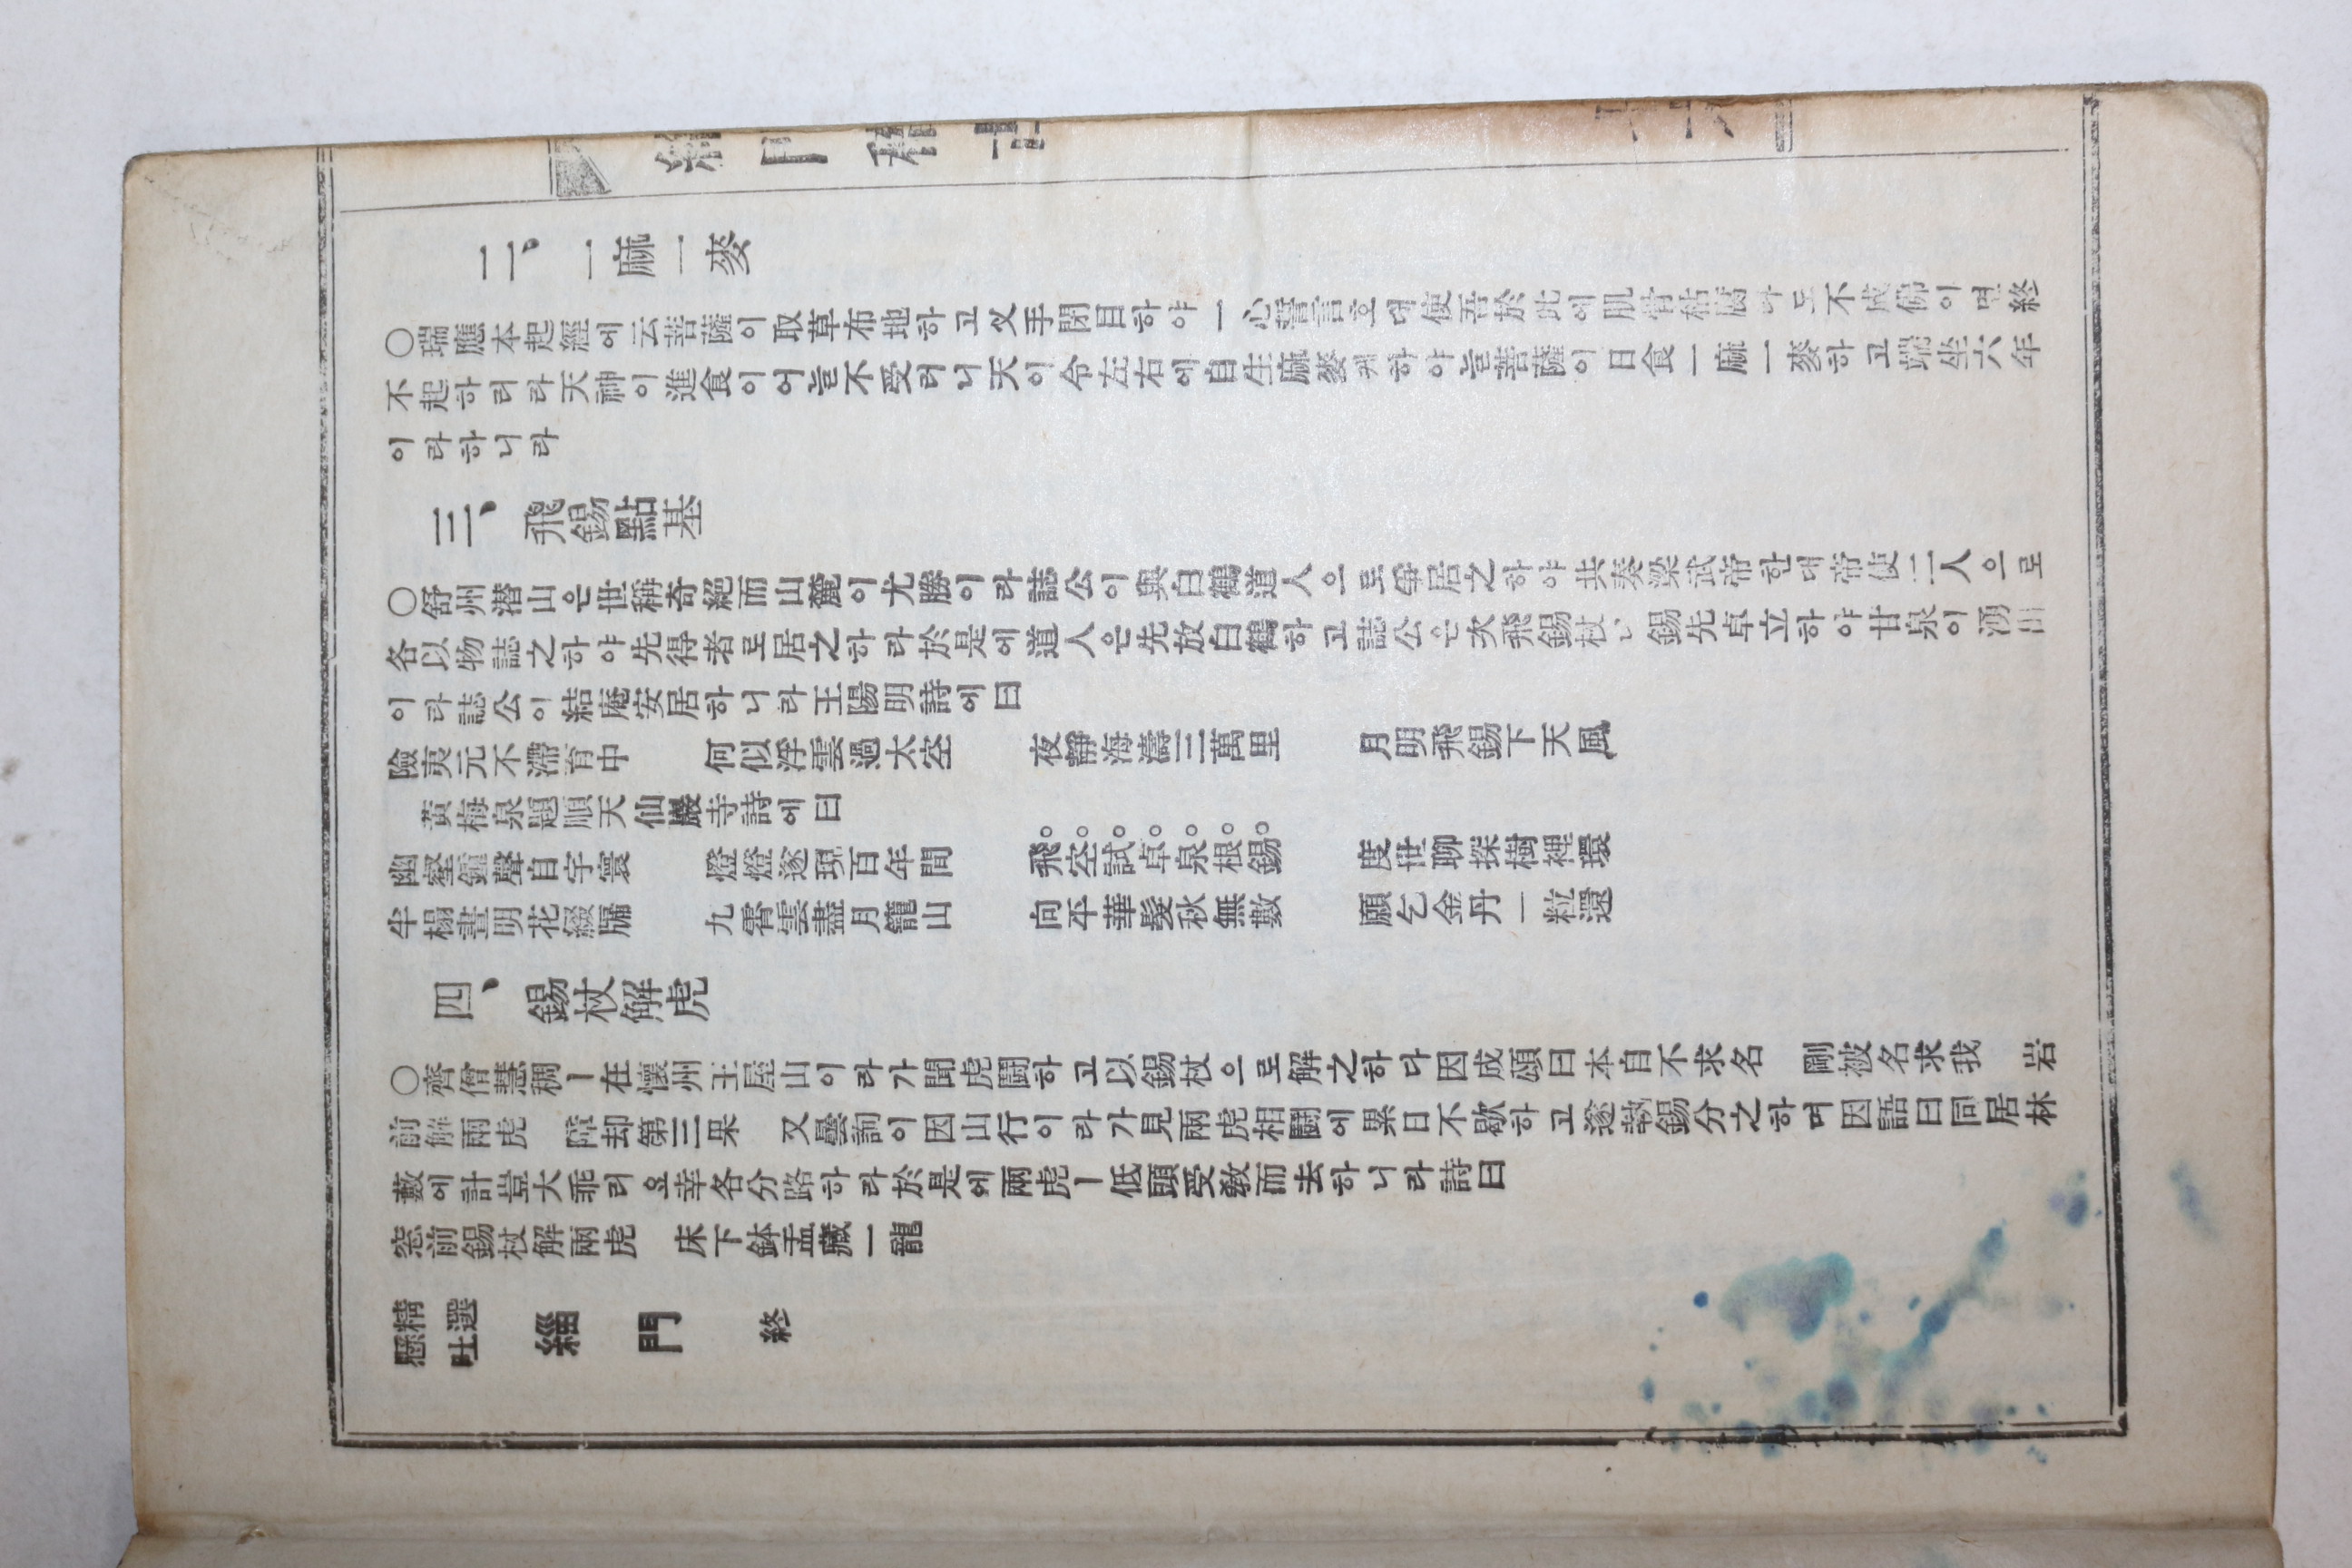 二、一麻一麥
○瑞應本起經에云菩薩이取草布地하고叉手閉目하야一心誓言호대使吾於此에肌骨枯腐라도不成佛이면終
不起하려라天神이進食이어늘不受러니天이令左右에自生麻麥케하야늘菩薩이日食一麻一麥하고端坐六年
이라하니라
三、飛錫點基
○舒州潜山은世稱奇絕而山麓이尤勝이라誌公이與白鶴道人으로爭居之하야共奏梁武帝한대帝使二人으로
各以物誌之하야先得者로居之하라於是에道人은先放白鶴하고誌公은次飛錫杖ㅣ錫先卓立하야甘泉이湧出
이라誌公이結庵安居하니라王陽明詩에曰
險夷元不滯胷中　何似浮雲過太空　夜靜海濤三萬里　月明飛錫下天風
黃梅泉題順天仙巖寺詩에曰
幽壑鍾聲自宇寰　燈燈遂現百年間　飛空試卓泉根錫　度世聊探樹裡環
半榻晝明花綴牖　九霄雲盡月籠山　向平華髮秋無數　願乞金丹一粒還
四、錫杖解虎
○齊僧慧稠ㅣ在懷州王屋山이라가聞虎鬪하고以錫杖으로解之하다因成頌曰本自不求名　剛被名求我　岩
前解兩虎　障却第三果　又曇詢이因山行이라가見兩虎相鬪에累日不歇하고遂執錫分之하며因語曰同居林
藪에計豈大乖리요幸各分路하라於是에兩虎ㅣ低頭受敎而去하니라詩曰
窓前錫杖解兩虎　床下鉢盂藏一龍
精選懸吐　緇門　終
緇門稽古